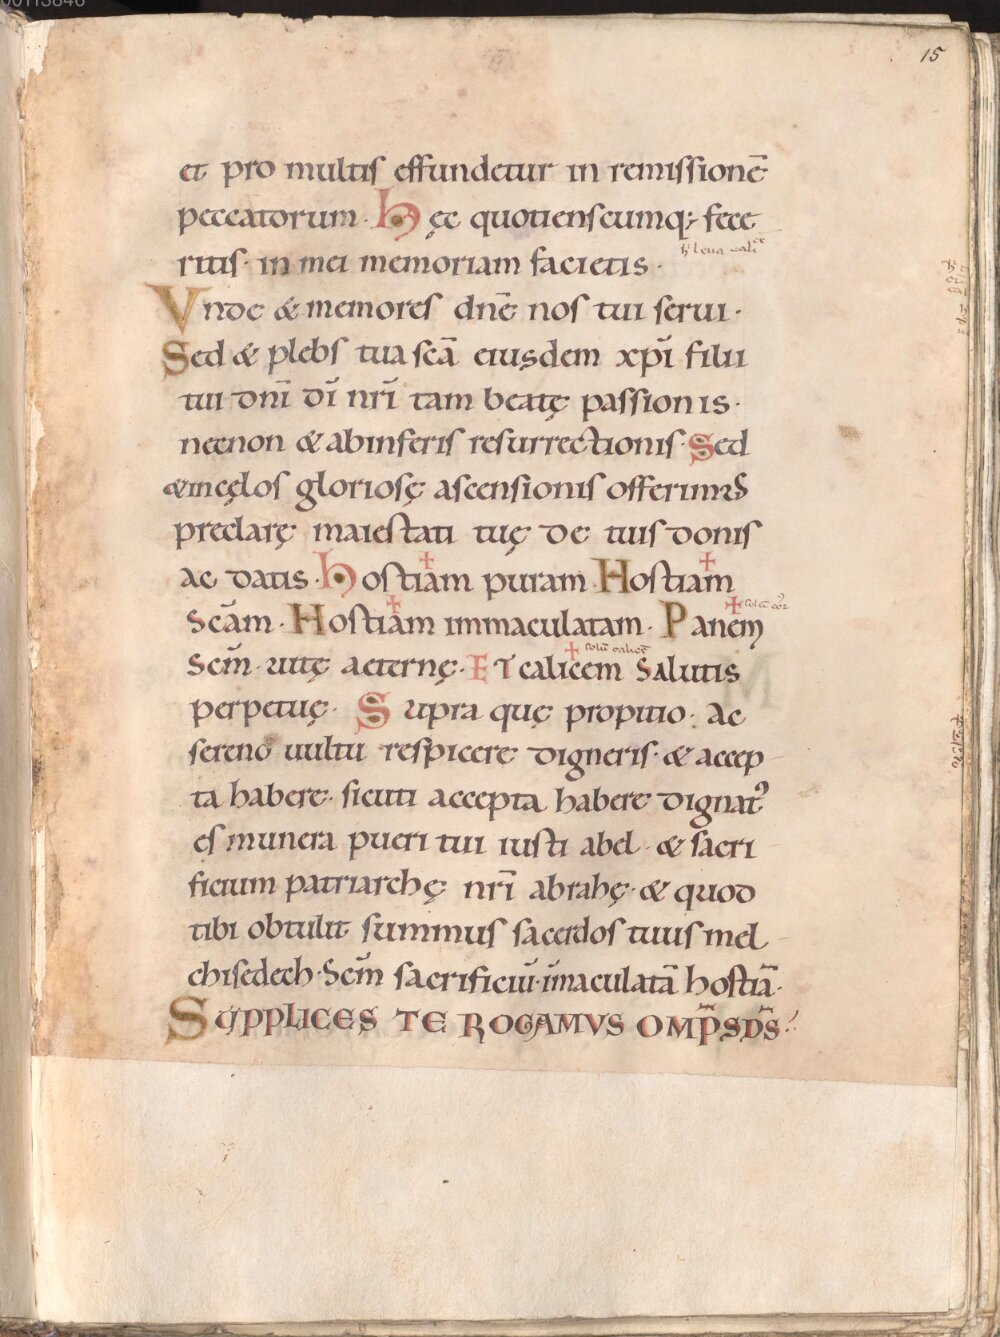 15
et pro multis effundetur in remissionē
peccatorum · Hęc quotienscumq; fece
ritis · in mei memoriam facietis ·
Vnde & memores dnē nos tui serui ·
Sed & plebs tua scā eiusdem xp̄i filii
tui dnī dī nrī tam beatę passionis ·
necnon & abinferis resurrectionis · Sed
& incęlos gloriosę ascensionis offerimus
preclarę maiestati tuę de tuis donis
ac datis · Hostiam puram Hostiam
Scām · Hostiam immaculatam · Panem
Scm̄ · uitę aeternę · ET calicem Salutis
perpetuę · Supra quę propitio · Ac
sereno uultu respicere digneris · & accep
ta habere · sicuti accepta habere dignatꝰ
es munera pueri tui iusti abel · & sacri
ficium patriarchę nrī abrahę · & quod
tibi obtulit summus sacerdos tuus mel
chisedech · Scm̄ sacrificiū · īmaculatā hostiā ·
SUPPLICES TE ROGAMVS OMP̄S D̄S